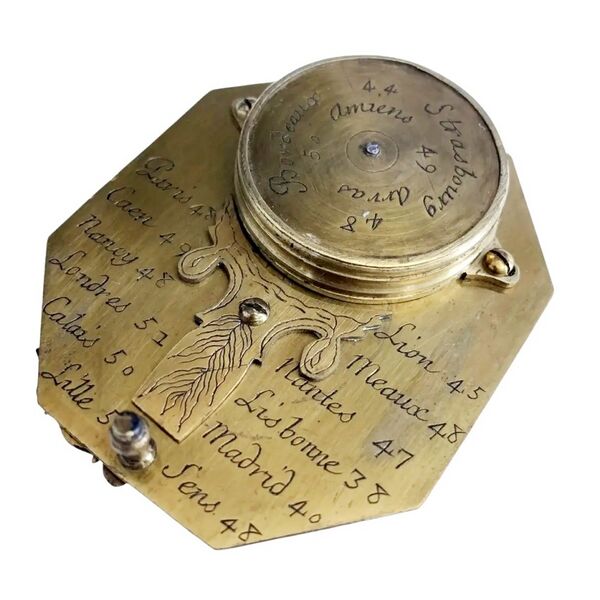 Bordeaux 44
Strasbourg 48
Amiens 49
Arras 50
Paris 48
Caen 49
Nancy 48
Londres 51
Calais 50
Lille 5
Lion 45
Meaux 48
Nantes 47
Lisbonne 38
Madrid 40
Sens 48